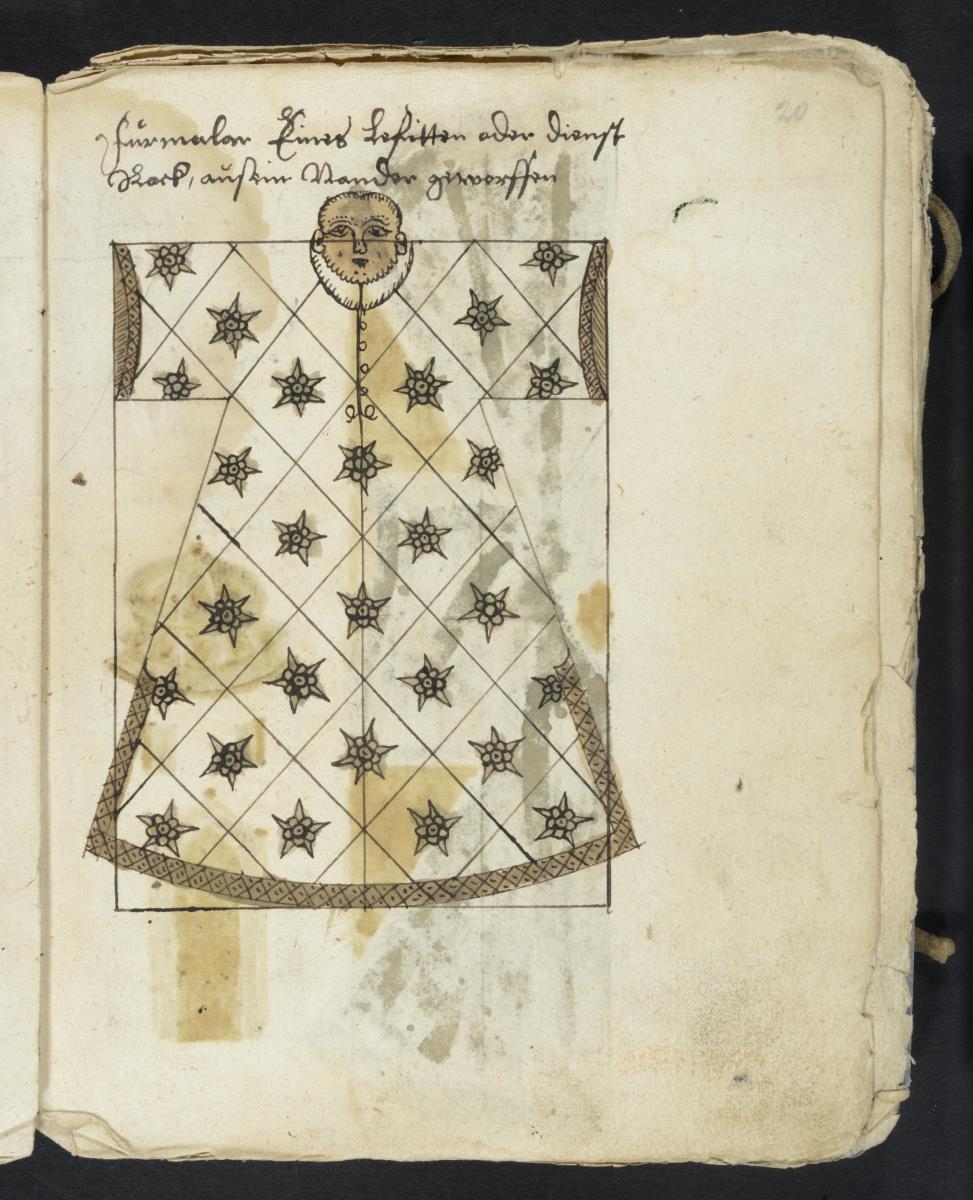 Fürmalar Eines Lefitten oder dienst
Rock, auß ein Nander geworffen
20